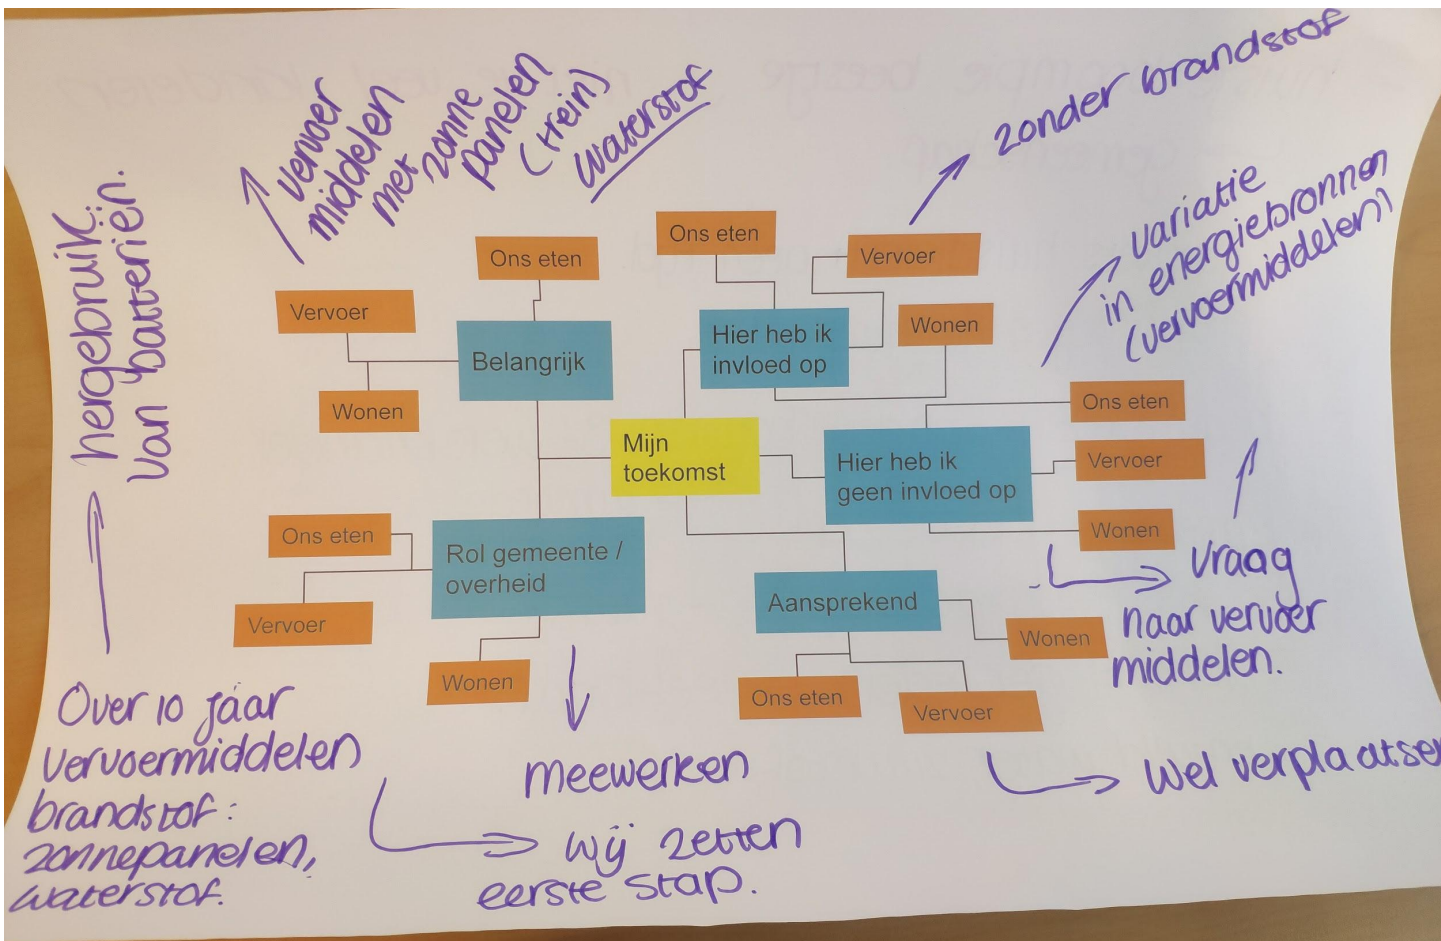 hergebruik
van batteriën.
vervoer
middelen
met zonne
panelen
(trein)
waterstof
zonder brandstof
variatie
in energiebronnen
(vervoermiddelen)
Ons eten
Vervoer
Wonen
Belangrijk
Ons eten
Vervoer
Wonen
Hier heb ik
invloed op
Mijn
toekomst
Ons eten
Vervoer
Wonen
Hier heb ik
geen invloed op
vraag
naar vervoer
middelen.
Ons eten
Vervoer
Wonen
Rol gemeente /
overheid
Aansprekend
Wonen
Ons eten
Vervoer
Over 10 jaar
vervoermiddelen
brandstof:
zonnepanelen,
waterstof.
meewerken
wij zetten
eerste stap.
wel verplaatsen